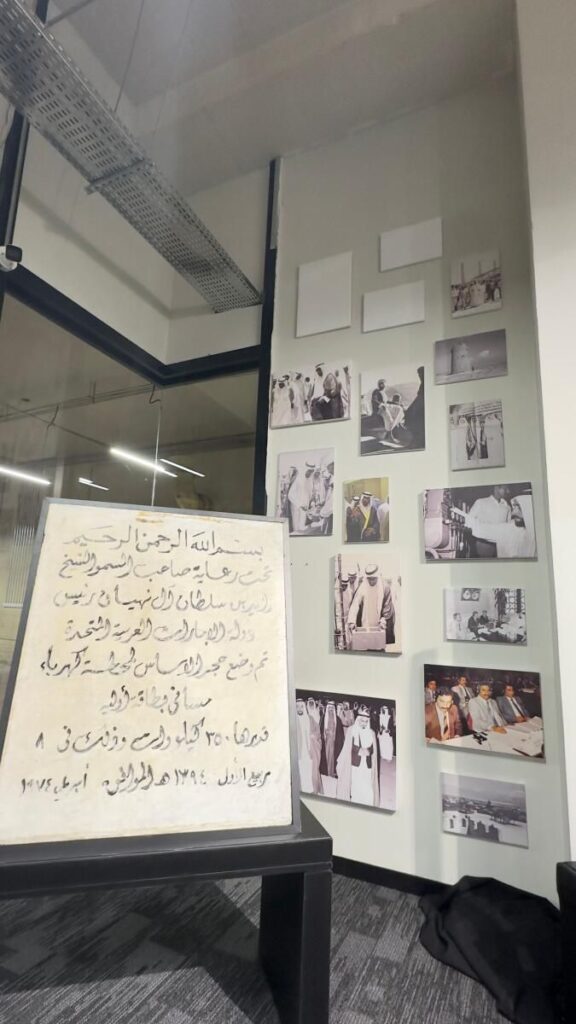 بسم الله الرحمن الرحيم
تحت رعاية صاحب السمو الشيخ
زايد بن سلطان ال نهيان رئيس
دولة الامارات العربية المتحدة
تم وضع حجر الاساس لمحطة كهرباء
مسافي بطاقة أولية
قدرها ٣٥٠ كيلو وات وذلك في ٨
ربيع الأول ١٣٩٤ هـ الموافق أبريل ١٩٧٤